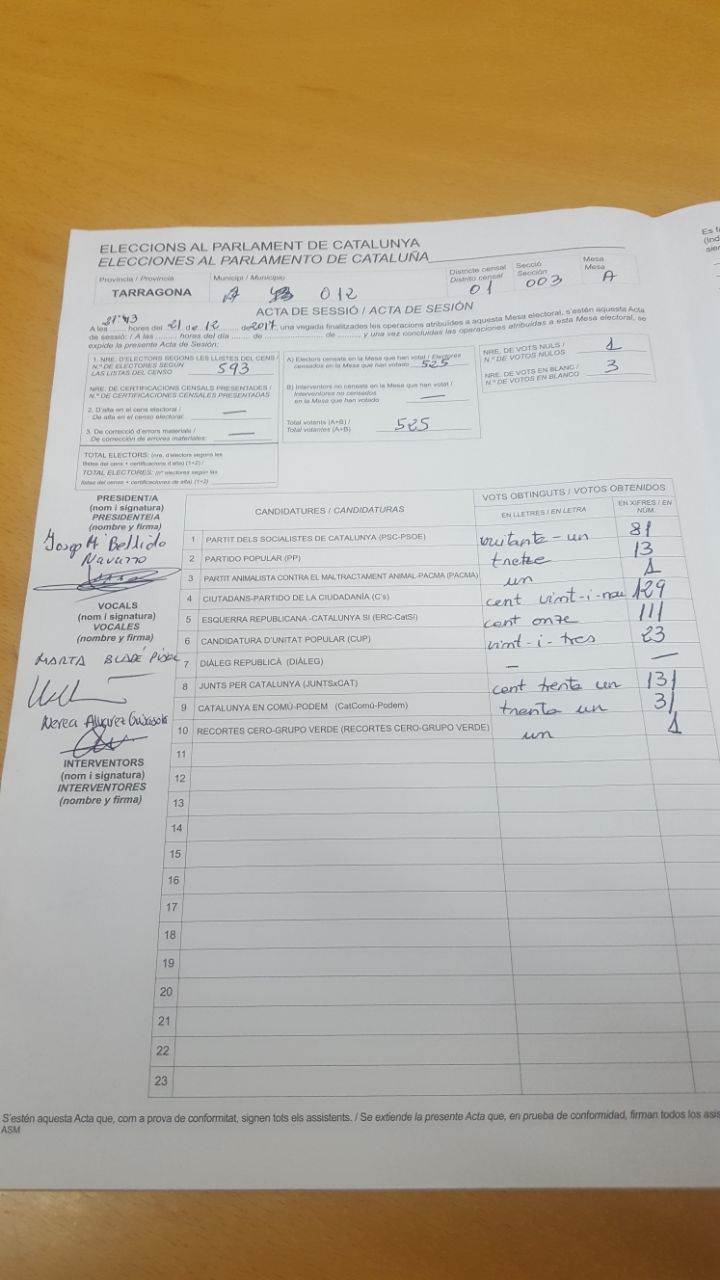 ELECCIONS AL PARLAMENT DE CATALUNYA
ELECCIONES AL PARLAMENTO DE CATALUÑA
Provincia / Provincia
TARRAGONA
Municipi / Municipio
012
Districte censal
Distrito censal
01
Secció
Sección
003
Mesa
Mesa
A
ACTA DE SESSIÓ / ACTA DE SESIÓN
A les 21'43 hores del 21 de 12 de 2017 una vegada finalitzades les operacions atribuïdes a aquesta Mesa electoral, s'estén aquesta Acta
de sessió: / A las ........ horas del día ........ de ........ de ........ y una vez concluidas las operaciones atribuidas a esta Mesa electoral, se
expide la presente Acta de Sesión:
1. NRE. D'ELECTORS SEGONS LES LLISTES DEL CENS /
N.º DE ELECTORES SEGÚN
LAS LISTAS DEL CENSO 593
NRE. DE CERTIFICACIONS CENSALS PRESENTADES /
N.º DE CERTIFICACIONES CENSALES PRESENTADAS
2. D'alta en el cens electoral /
De alta en el censo electoral: —
3. De correcció d'errors materials /
De corrección de errores materiales: —
TOTAL ELECTORS: (nre. d'electors segons les
llistes del cens + certificacions d'alta) (1+2) /
TOTAL ELECTORES: (nº electores según las
listas del censo + certificaciones de alta) (1+2)
A) Electors censats en la Mesa que han votat / Electores
censados en la Mesa que han votado 525
B) Interventors no censats en la Mesa que han votat /
Interventores no censados
en la Mesa que han votado —
Total votants (A+B) /
Total votantes (A+B) 525
NRE. DE VOTS NULS /
N.º DE VOTOS NULOS 1
NRE. DE VOTS EN BLANC /
N.º DE VOTOS EN BLANCO 3
PRESIDENT/A
(nom i signatura)
PRESIDENTE/A
(nombre y firma)
Josep M Bellido
Navarro
VOCALS
(nom i signatura)
VOCALES
(nombre y firma)
MARTA
Nerea Alvarez
INTERVENTORS
(nom i signatura)
INTERVENTORES
(nombre y firma)
CANDIDATURES / CANDIDATURAS
VOTS OBTINGUTS / VOTOS OBTENIDOS
EN LLETRES / EN LETRA
EN XIFRES / EN NÚM.
1 PARTIT DELS SOCIALISTES DE CATALUNYA (PSC-PSOE) vuitanta-un 81
2 PARTIDO POPULAR (PP) tretze 13
3 PARTIT ANIMALISTA CONTRA EL MALTRACTAMENT ANIMAL-PACMA (PACMA) un 1
4 CIUTADANS-PARTIDO DE LA CIUDADANÍA (C's) cent vint-i-nou 129
5 ESQUERRA REPUBLICANA -CATALUNYA SÍ (ERC-CatSí) cent onze 111
6 CANDIDATURA D'UNITAT POPULAR (CUP) vint-i-tres 23
7 DIÀLEG REPUBLICÀ (DIÀLEG) — —
8 JUNTS PER CATALUNYA (JUNTSxCAT) cent trenta un 131
9 CATALUNYA EN COMÚ-PODEM (CatComú-Podem) trenta un 31
10 RECORTES CERO-GRUPO VERDE (RECORTES CERO-GRUPO VERDE) un 1
11
12
13
14
15
16
17
18
19
20
21
22
23
S'estén aquesta Acta que, com a prova de conformitat, signen tots els assistents. / Se extiende la presente Acta que, en prueba de conformidad, firman todos los
ASM